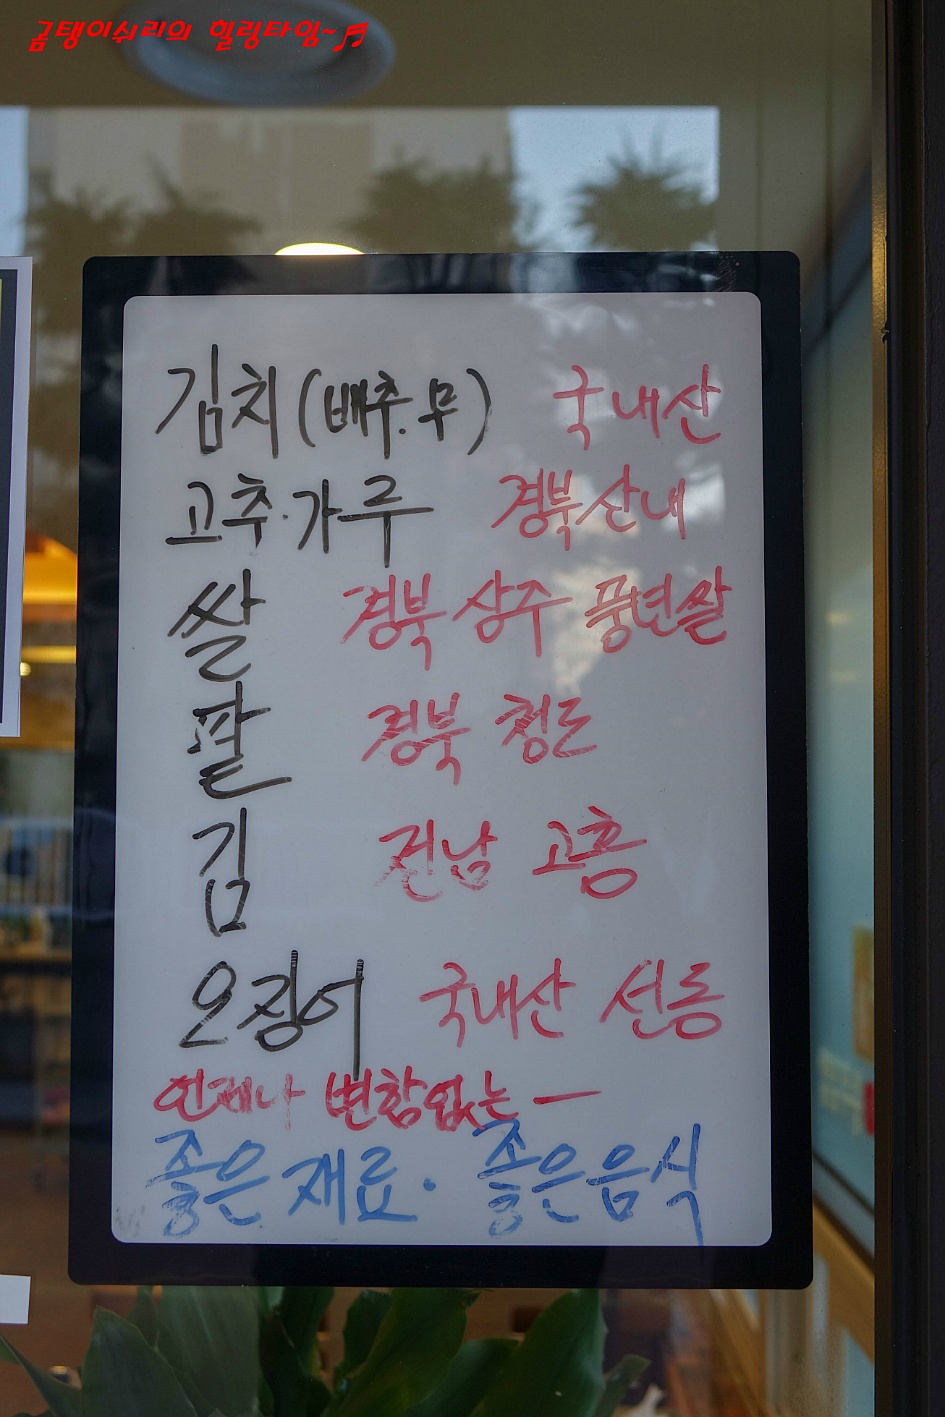 곰탱이쉬리의 힐링타임~♬
김치(배추.무) 국내산
고추.가루 경북산내
쌀 경북 상주 풍년쌀
팥 경북 청도
김 전남 고흥
오징어 국내산 선동
언제나 변함없는 —
좋은재료. 좋은음식